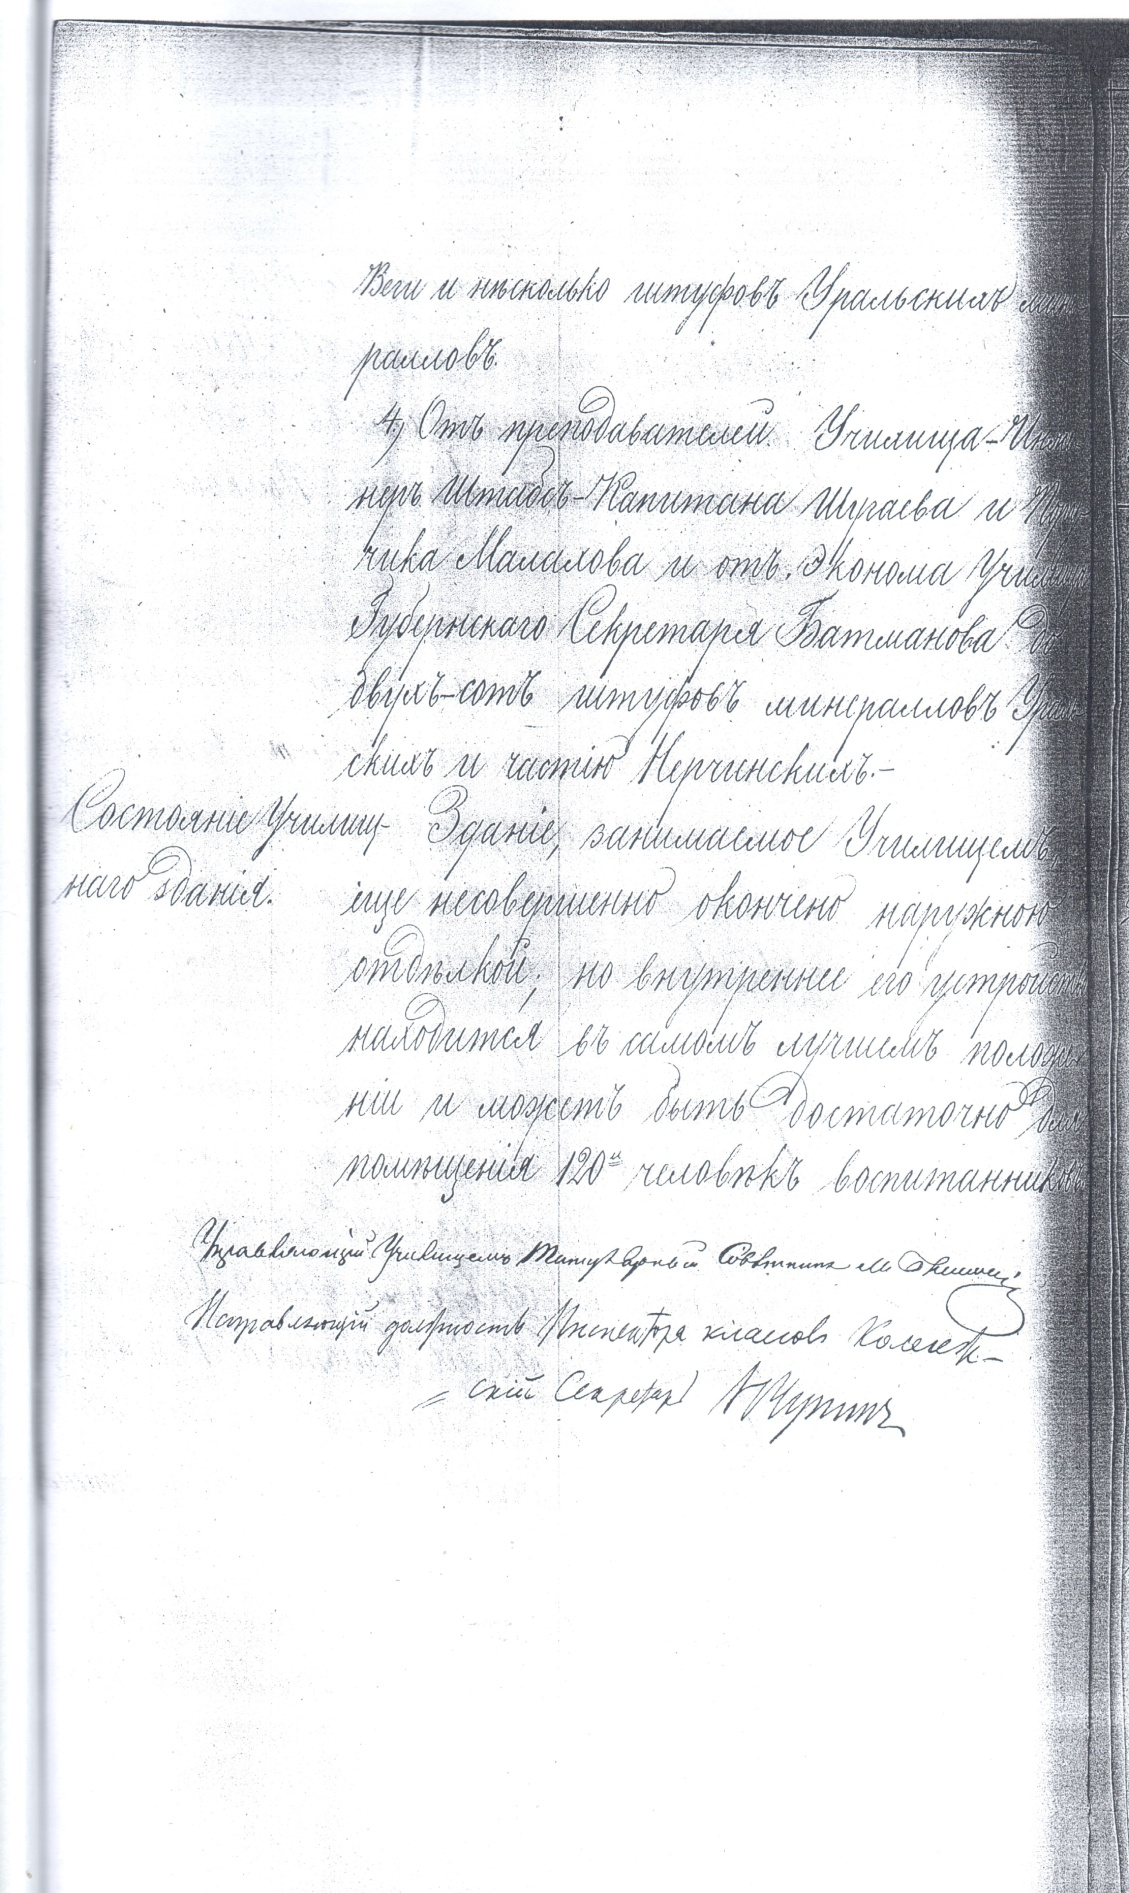 Веги и нѣсколько штуфовъ Уральскихъ мин-
ралловъ.
4., Отъ преподавателей Училища-Инже-
неръ Штабсъ-Капитана Шугаева и Пору-
чика Малахова и отъ Эконома Училища
Губернскаго Секретаря Батманова до
двухъ-сотъ штуфовъ минералловъ Ураль-
скихъ и частію Нерчинскихъ.-
Состояніе Училищ-
наго зданія.
Зданіе, занимаемое Училищемъ,
еще несовершенно окончено наружною
отдѣлкой, но внутреннее его устройство
находится въ самомъ лучшемъ положе-
ніи и можетъ быть достаточно для
помѣщенія 120и человѣкъ воспитанниковъ
Управляющій Училищемъ Титулярный Совѣтникъ М
Исправляющій должность Инспектора классовъ Коллеж-
скій Секретарь